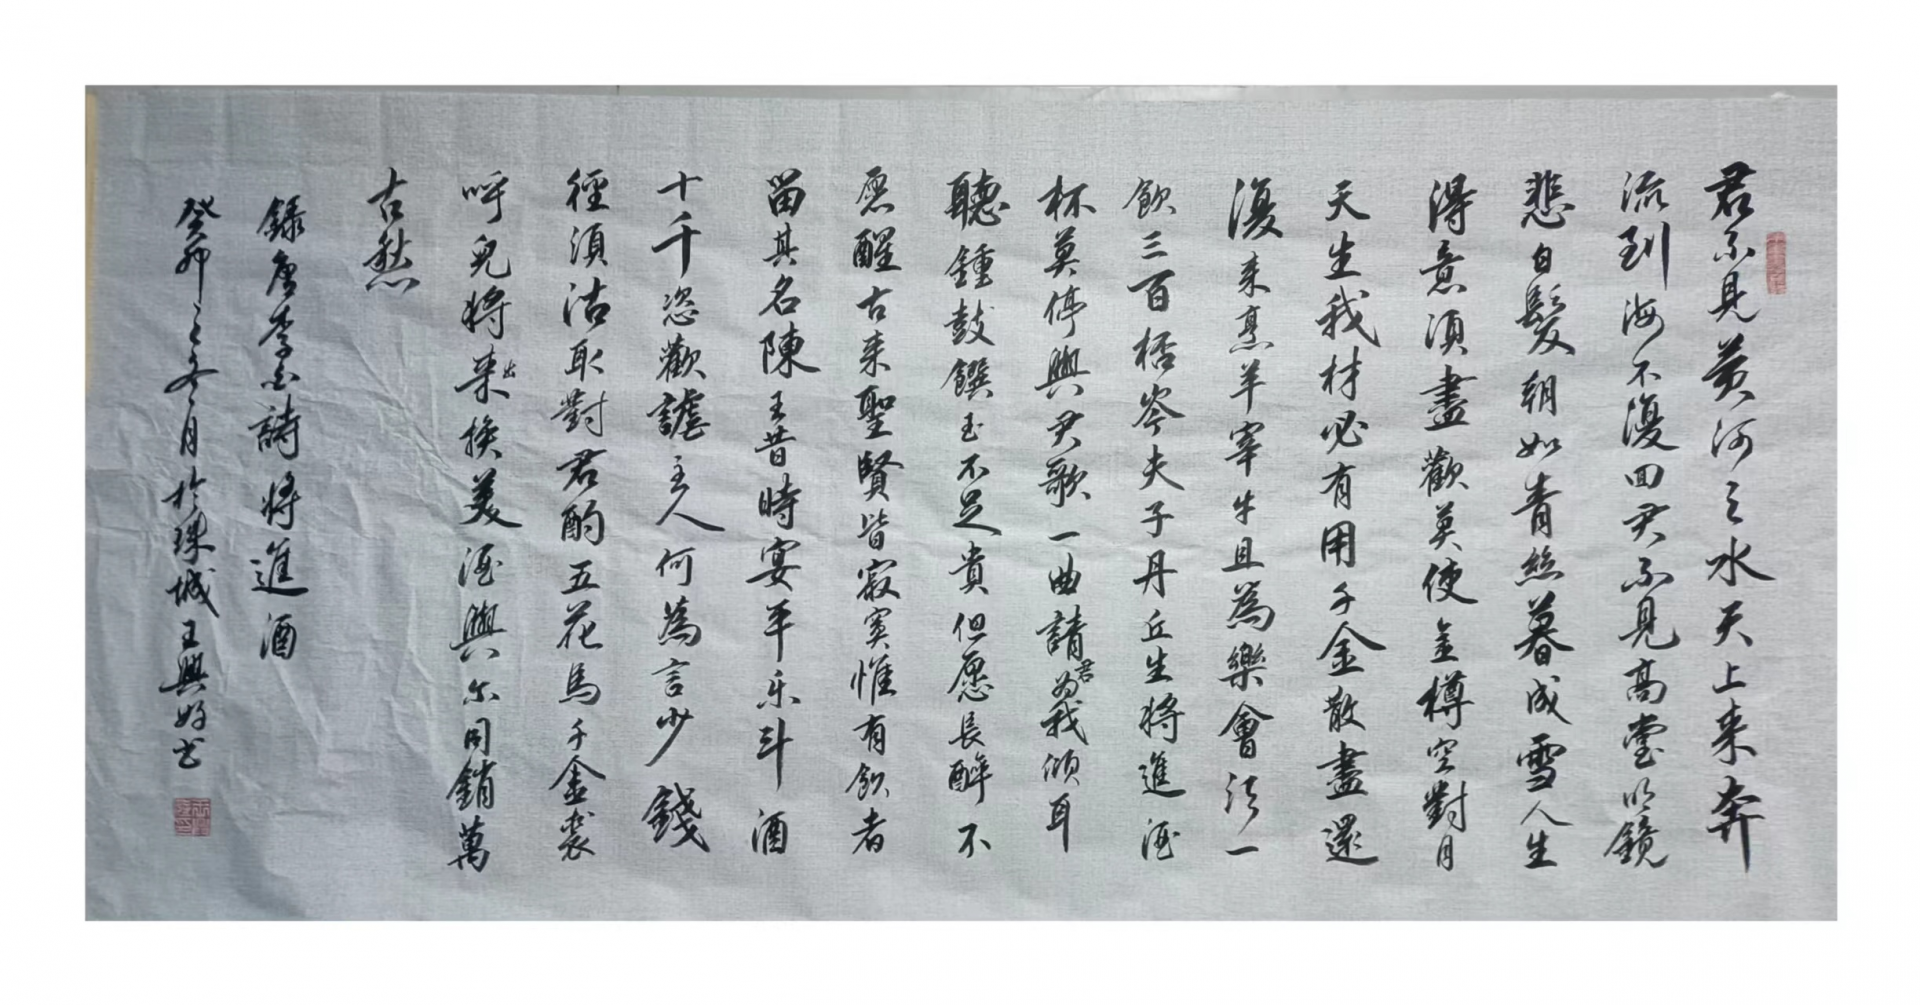 君不見黃河之水天上来奔
流到海不復回君不見高堂明鏡
悲白髮朝如青絲暮成雪人生
得意須盡歡莫使金樽空對月
天生我材必有用千金散盡還
復来烹羊宰牛且為樂會須一
飲三百桮岑夫子丹丘生將進酒
杯莫停與君歌一曲請君为我傾耳
聽鍾鼓饌玉不足貴但愿長醉不
愿醒古来聖賢皆寂寞惟有飲者
留其名陳王昔時宴平乐斗酒
十千恣歡謔主人何為言少錢
徑須沽取對君酌五花馬千金裘
呼兒将来出換美酒與尔同銷萬
古愁
錄唐李白詩将進酒
癸卯之冬月於珠城王興好书